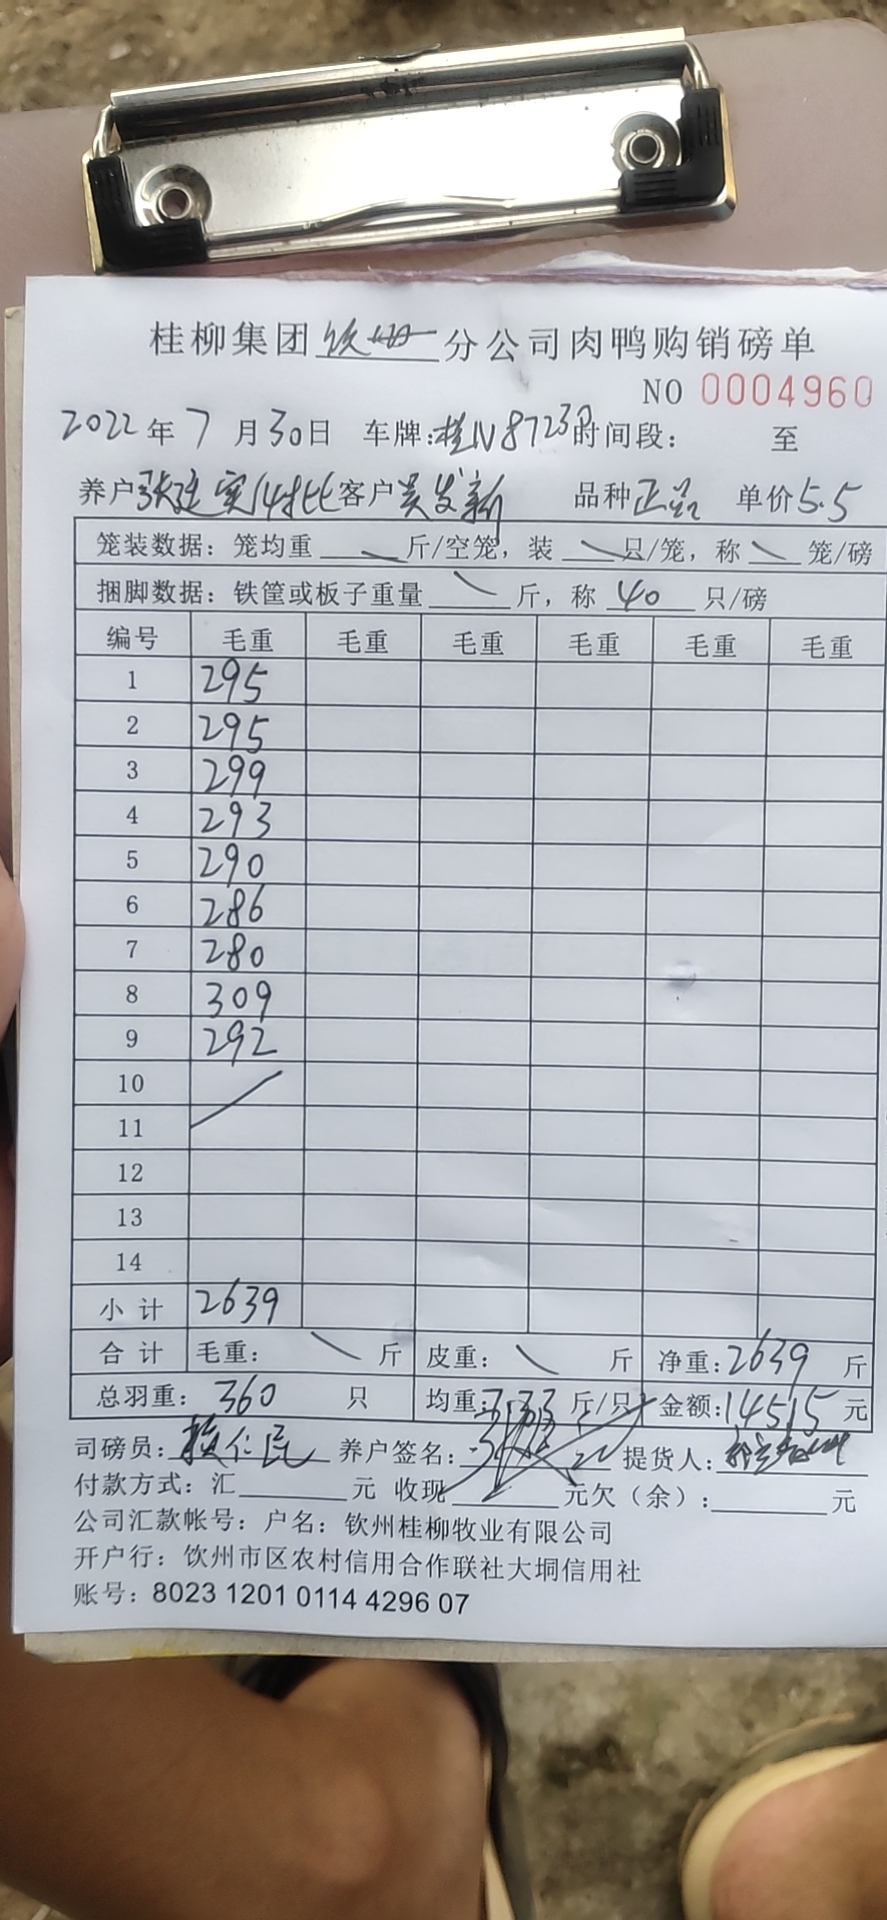 桂柳集团钦州分公司肉鸭购销磅单
NO 0004960
2022年7月30日 车牌:桂N8723 时间段: 至
养户张廷实 客户吴发新 品种正品 单价5.5
笼装数据: 笼均重 斤/空笼, 装 只/笼, 称 笼/磅
捆脚数据: 铁筐或板子重量 斤, 称 40 只/磅
编号 毛重 毛重 毛重 毛重 毛重 毛重
1 295
2 295
3 299
4 293
5 290
6 286
7 280
8 309
9 292
10
11
12
13
14
小计 2639
合计 毛重: 斤 皮重: 斤 净重:2639 斤
总羽重: 360 只 均重:7.33 斤/只 金额:14515 元
司磅员: 养户签名: 提货人:
付款方式: 汇 元 收现 元欠(余): 元
公司汇款帐号: 户名: 钦州桂柳牧业有限公司
开户行: 饮州市区农村信用合作联社大垌信用社
账号: 8023 1201 0114 4296 07